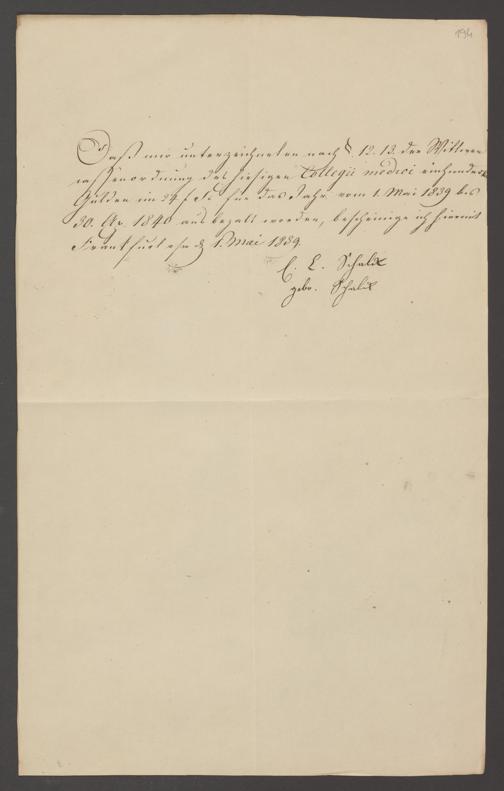 194
Daß mir unterzeichneten nach §. 12. 13. der Wittwen
cassenordnung des hiesigen Collegii medici einhundert
Gulden im 24 f. F. für das Jahr vom 1. Mai 1839 bis
30. Ap. 1840 ausbezalt worden, bescheinige ich hiermit
Frankfurt a/m d. 1. Mai 1839.
C. E. Schalk
gebr. Schalk